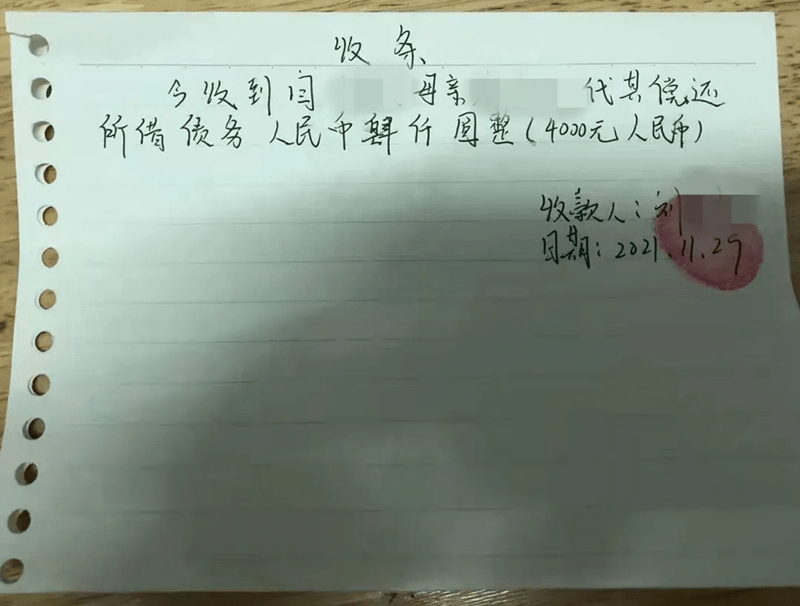 收条
今收到闫 母亲 代其偿还
所借债务人民币肆仟圆整(4000元人民币)
收款人:刘
日期:2021.11.29